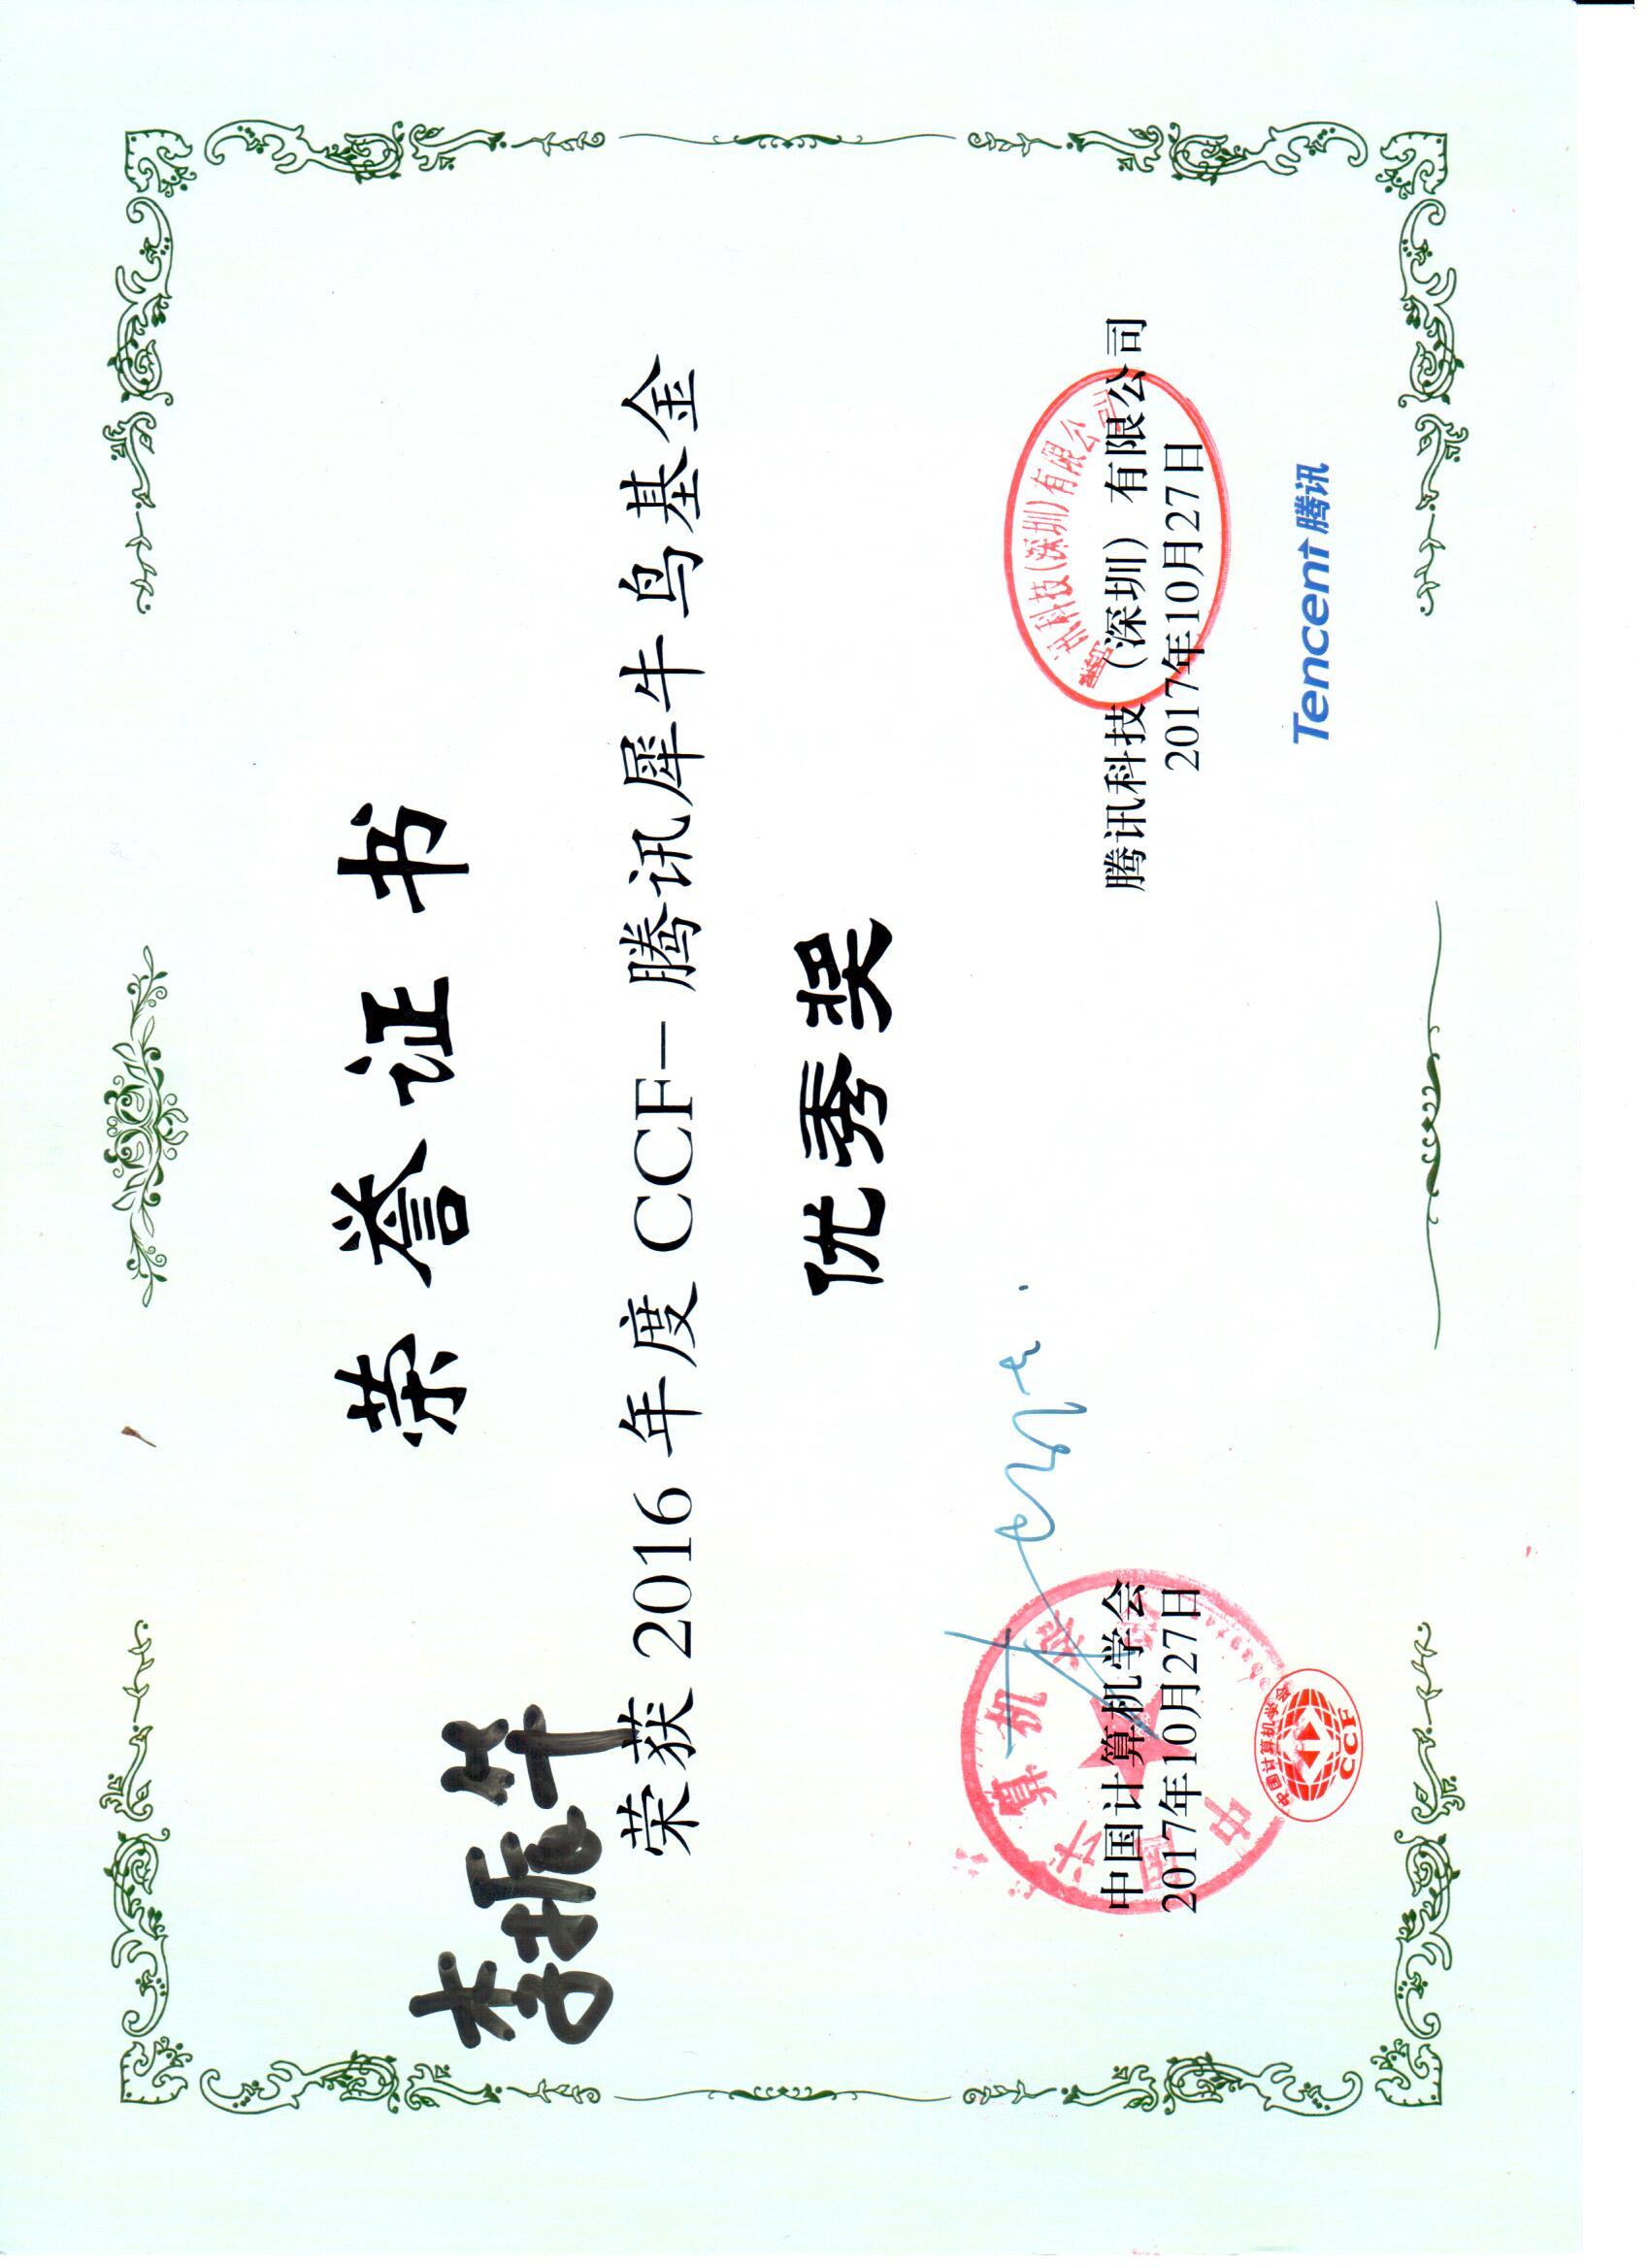 荣誉证书
李振华
荣获 2016 年度 CCF-腾讯犀牛鸟基金
优秀奖
中国计算机学会
2017年10月27日
腾讯科技（深圳）有限公司
2017年10月27日
中国计算机学会
讯科技(深圳)有限公司
中国计算机学会
CCF
Tencent 腾讯